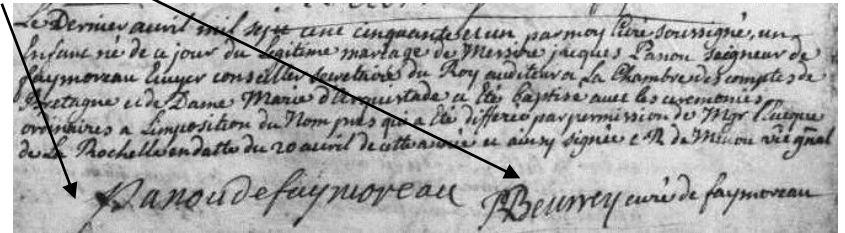 Le Dernier avril mil sept cent cinquante et un par moy curé soussigné, un
Enfant né de ce jour du Legitime mariage de Messire jacques Panou Seigneur de
faymoreau Ecuyer conseiller secretaire du Roy auditeur a La Chambre des comptes de
Bretagne et de Dame Marie d'Arquistade a été baptisé avec les ceremonies
ordinaires a L'imposition du Nom pres qui a été differée par permission de Mgr l'Eveque
de La Rochelle en datte du 20 avril de cette année et ainsy signée + R de Menou
Panou de faymoreau
Beurrey curé de faymoreau